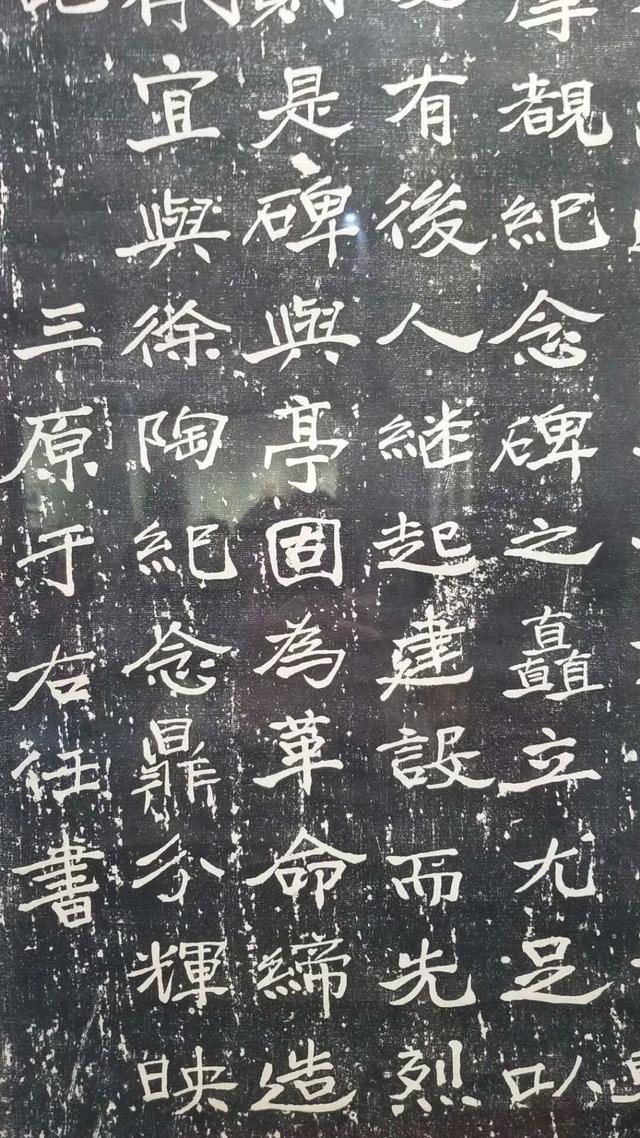 覩紀念碑之矗立尤足以
有後人継起建設而先烈
是碑與亭固為革命締造
宜與徐陶紀念鼎分輝映
三原于右任書